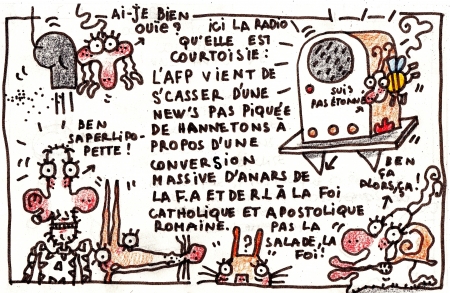 AI-JE BIEN
OUIE ?
ICI LA RADIO
QU'ELLE EST
COURTOISIE :
L'AFP VIENT DE
S'CASSER D'UNE
NEW'S PAS PIQUÉE
DE HANNETONS À
PROPOS D'UNE
CONVERSION
MASSIVE D'ANARS DE
LA F.A ET DE R.L À LA FOI
CATHOLIQUE ET APOSTOLIQUE
ROMAINE.
SUIS
PAS ÉTONNÉ
BEN
SAPERLIPO-
PETTE !
?
PAS LA
SALADE, LA
FOI !
BEN
ÇA
ALORS, ÇA !